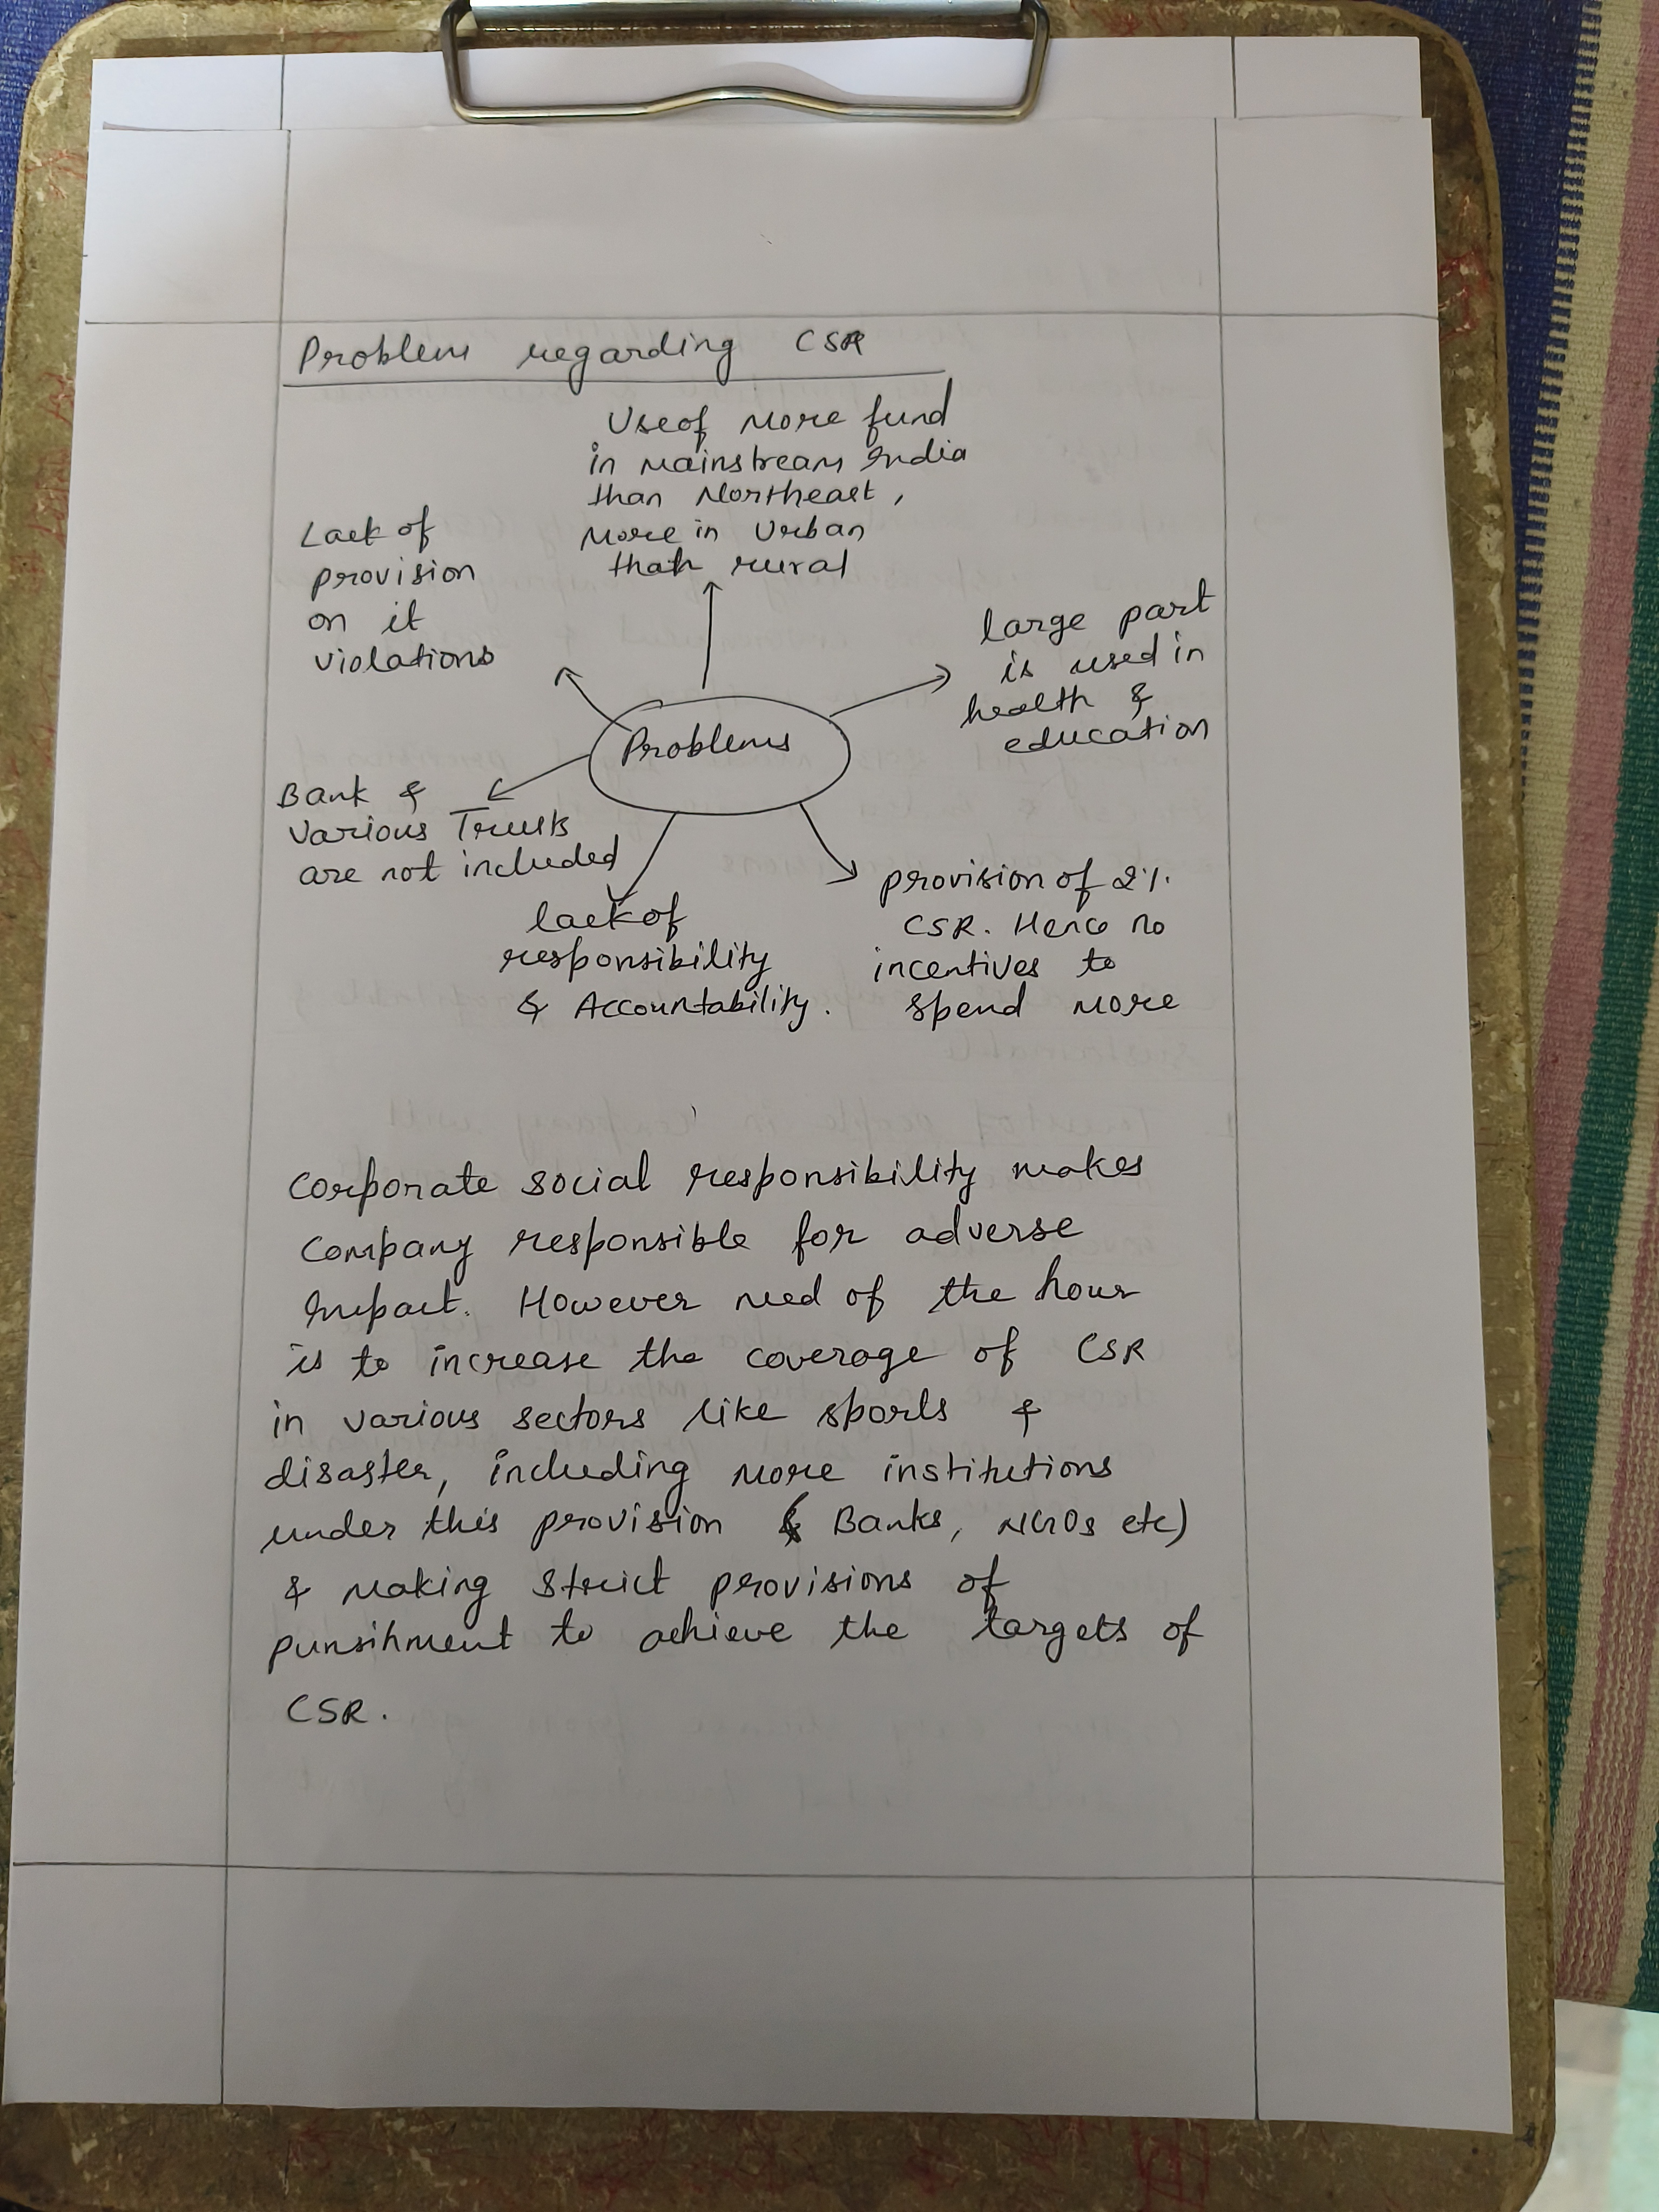 Problem regarding CSR
Use of more fund
in mainstream India
than Northeast,
more in Urban
than rural
Lack of
provision
on it
violations
large part
is used in
health &
education
Problems
Bank &
various Trusts
are not included
lack of
responsibility
& Accountability.
provision of 2%.
CSR. Hence no
incentives to
spend more
Corporate social responsibility makes
company responsible for adverse
impact. However need of the hour
is to increase the coverage of CSR
in various sectors like sports &
disaster, including more institutions
under this provision ( Banks, NGOs etc)
& making strict provisions of
punsihment to achieve the targets of
CSR.